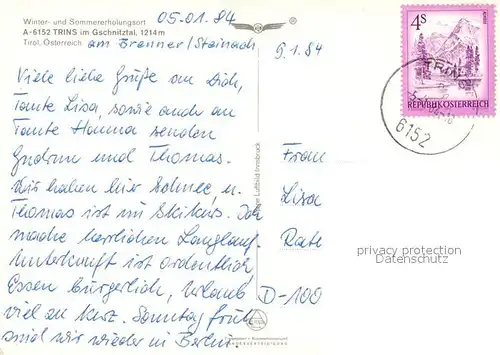 05.01.84
Winter- und Sommererholungsort
A-6152 TRINS im Gschnitztal, 1214 m
Tirol, Österreich
am Brenner/Steinach
9.1.84
4S
REPUBLIK ÖSTERREICH
TRINS
6152
Viele liebe Grüße an Dich,
Tante Lisa, sowie auch an
Tante Hanna senden
Gudrun und Thomas.
Wir haben hier Schnee u.
Thomas ist im Skikurs. Ich
mache herrlichen Langlauf.
Unterkunft ist ordentlich
Essen bürgerlich, Urlaub
viel zu kurz. Sonntag früh
sind wir wieder in Berlin.
Luftbild Innsbruck
Frau
Lisa
Rath
D-100
privacy protection
Datenschutz